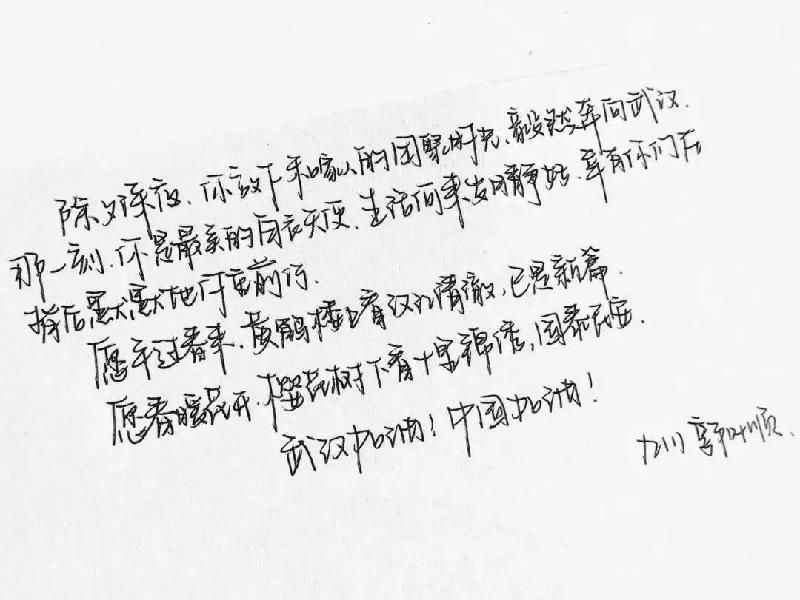 除夕深夜、你放下和家人的团聚时光、毅然奔向武汉.
那一刻、你是最美的白衣天使. 生活何来岁月静好、幸有你们在
背后默默地负重前行.
愿年过春来、黄鹤楼上看汉江清澈、已是新篇.
愿春暖花开、樱花树下看十里锦绣、国泰民安.
武汉加油！中国加油！
九川